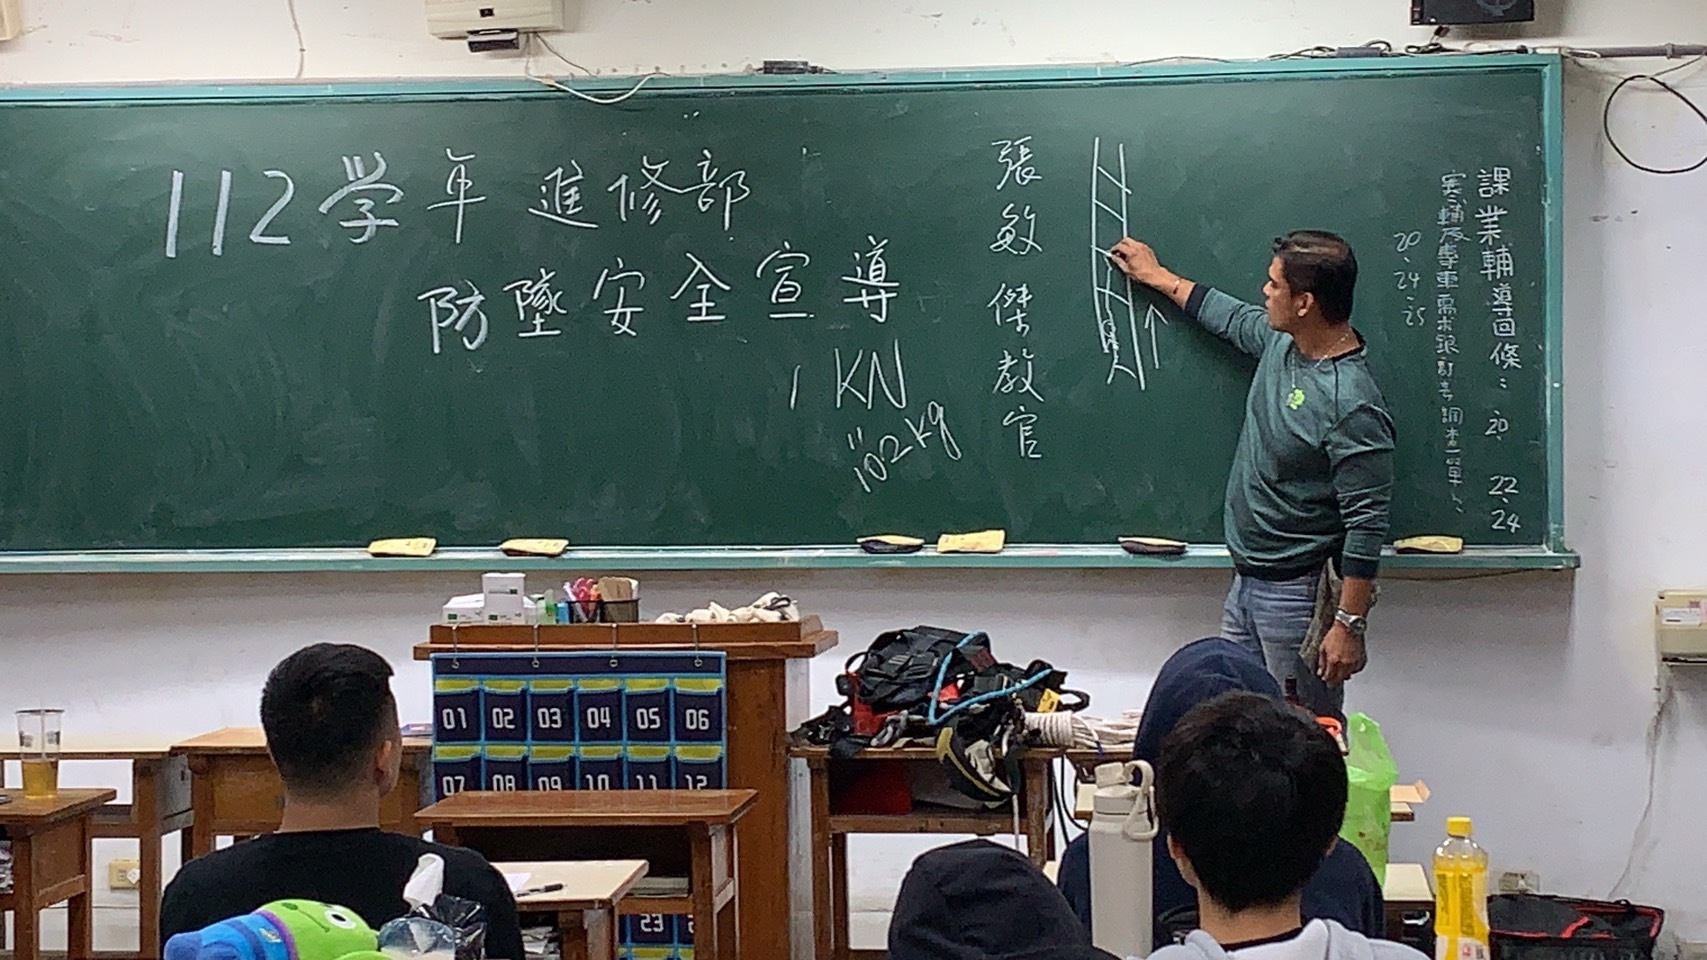 112学年進修部
防墜安全宣導
1 KN
102kg
張敏傑教官
課業輔導回條：20、22、24
20、24、25
01 02 03 04 05 06
07 08 09 10 11 12
23